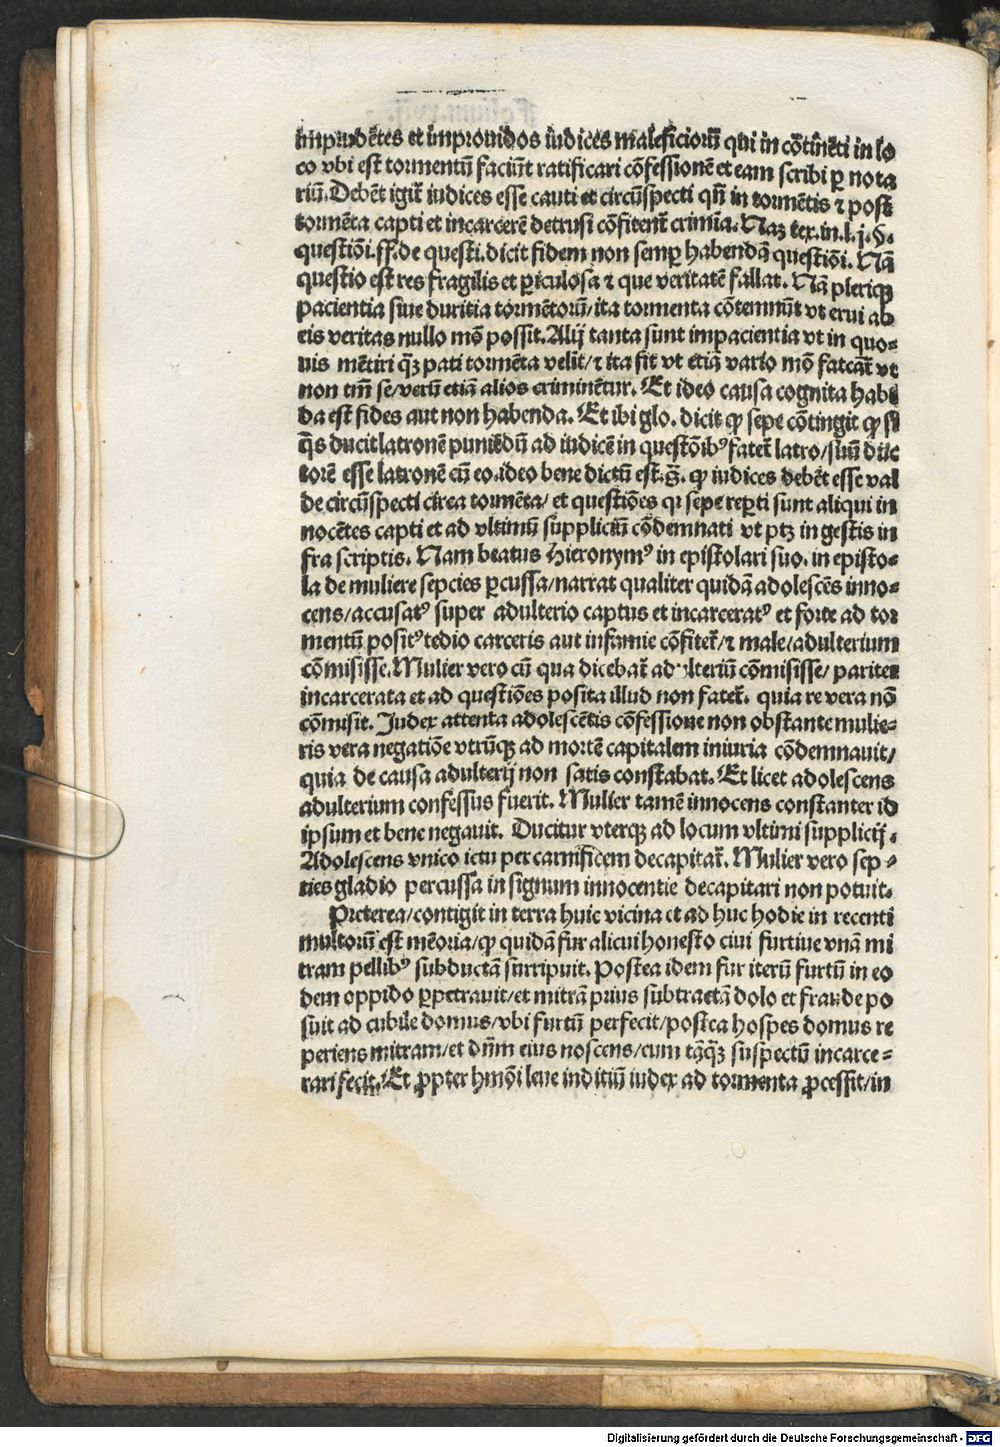 imprudētes et improuidos iudices maleficiorū qui in cōtinēti in lo
co vbi est tormentū faciūt ratificari cōfessionē et eam scribi ꝑ nota
riū. Debēt igit̄ iudices esse cauti et circūspecti qn̄ in tormētis ⁊ post
tormēta capti et incarcerē detrusi cōfitent̄ crimīa. Naꝫ tex. in. l. j. §.
questiōi. ff. de questi. dicit fidem non semꝑ habendā questiōi. Nā
questio est res fragilis et ꝑiculosa ⁊ que veritatē fallat. Nā pleriqꝫ
pacientia siue duritia tormētorū/ ita tormenta cōtemnūt vt erui ab
eis veritas nullo mō possit. Alij tanta sunt impacientia vt in quo⸗
uis mētiri qꝫ̄ pati tormēta velit/ ⁊ ita fit vt etiā vario mō fateāt̄ vt
non tm̄ se/ verū etiā alios criminētur. Et ideo causa cognita habē
da est fides aut non habenda. Et ibi glo. dicit ꝙ sepe cōtingit ꝙ si
q̄s ducit latronē puniēdū ad iudicē in questōibꝰ fatet̄ latro/ suū duc
torē esse latronē cū eo. ideo bene dictū est. s̄. ꝙ iudices debēt esse val
de circūspecti circa tormēta/ et questiōes qꝛ sepe reꝑti sunt aliqui in
nocētes capti et ad vltimū suppliciū cōdemnati vt ptꝫ in gestis in
fra scriptis. Nam beatus Hieronymꝰ in epistolari suo. in episto⸗
la de muliere sepcies ꝑcussa/ narrat qualiter quidā adolescēs inno⸗
cens/ accusatꝰ super adulterio captus et incarceratꝰ et forte ad tor
mentū positꝰ tedio carceris aut infamie cōfitet̄/ ⁊ male/ adulterium
cōmisisse. Mulier vero cū qua dicebat̄ adulteriū cōmisisse/ pariter
incarcerata et ad questiōes posita illud non fatet̄. quia re vera nō
cōmisit. Iudex attenta adolescētis cōfessione non obstante mulie⸗
ris vera negatiōe vtrūqꝫ ad mortē capitalem iniuria cōdemnauit/
quia de causa adulterij non satis constabat. Et licet adolescens
adulterium confessus fuerit. Mulier tamē innocens constanter id
ipsum et bene negauit. Ducitur vterqꝫ ad locum vltimi supplicij.
Adolescens vnico ictu per carnificem decapitat̄. Mulier vero sep⸗
ties gladio percussa in signum innocentie decapitari non potuit.
Preterea/ contigit in terra huic vicina et ad huc hodie in recenti
multorū est mēoria/ ꝙ quidā fur alicui honesto ciui furtiue vnā mi
tram pellibꝰ subductā surripuit. Postea idem fur iterū furtū in eo
dem oppido ꝑpetrauit/ et mitrā prius subtractā dolo et fraude po
suit ad cubile domus/ vbi furtū perfecit/ postea hospes domus re
periens mitram/ et dn̄m eius noscens/ eum tāqꝫ̄ suspectū incarce⸗
rari fecit. Et ꝓpter hmōi leue inditiū iudex ad tormenta ꝓcessit/ in
Digitalisierung gefördert durch die Deutsche Forschungsgemeinschaft - DFG